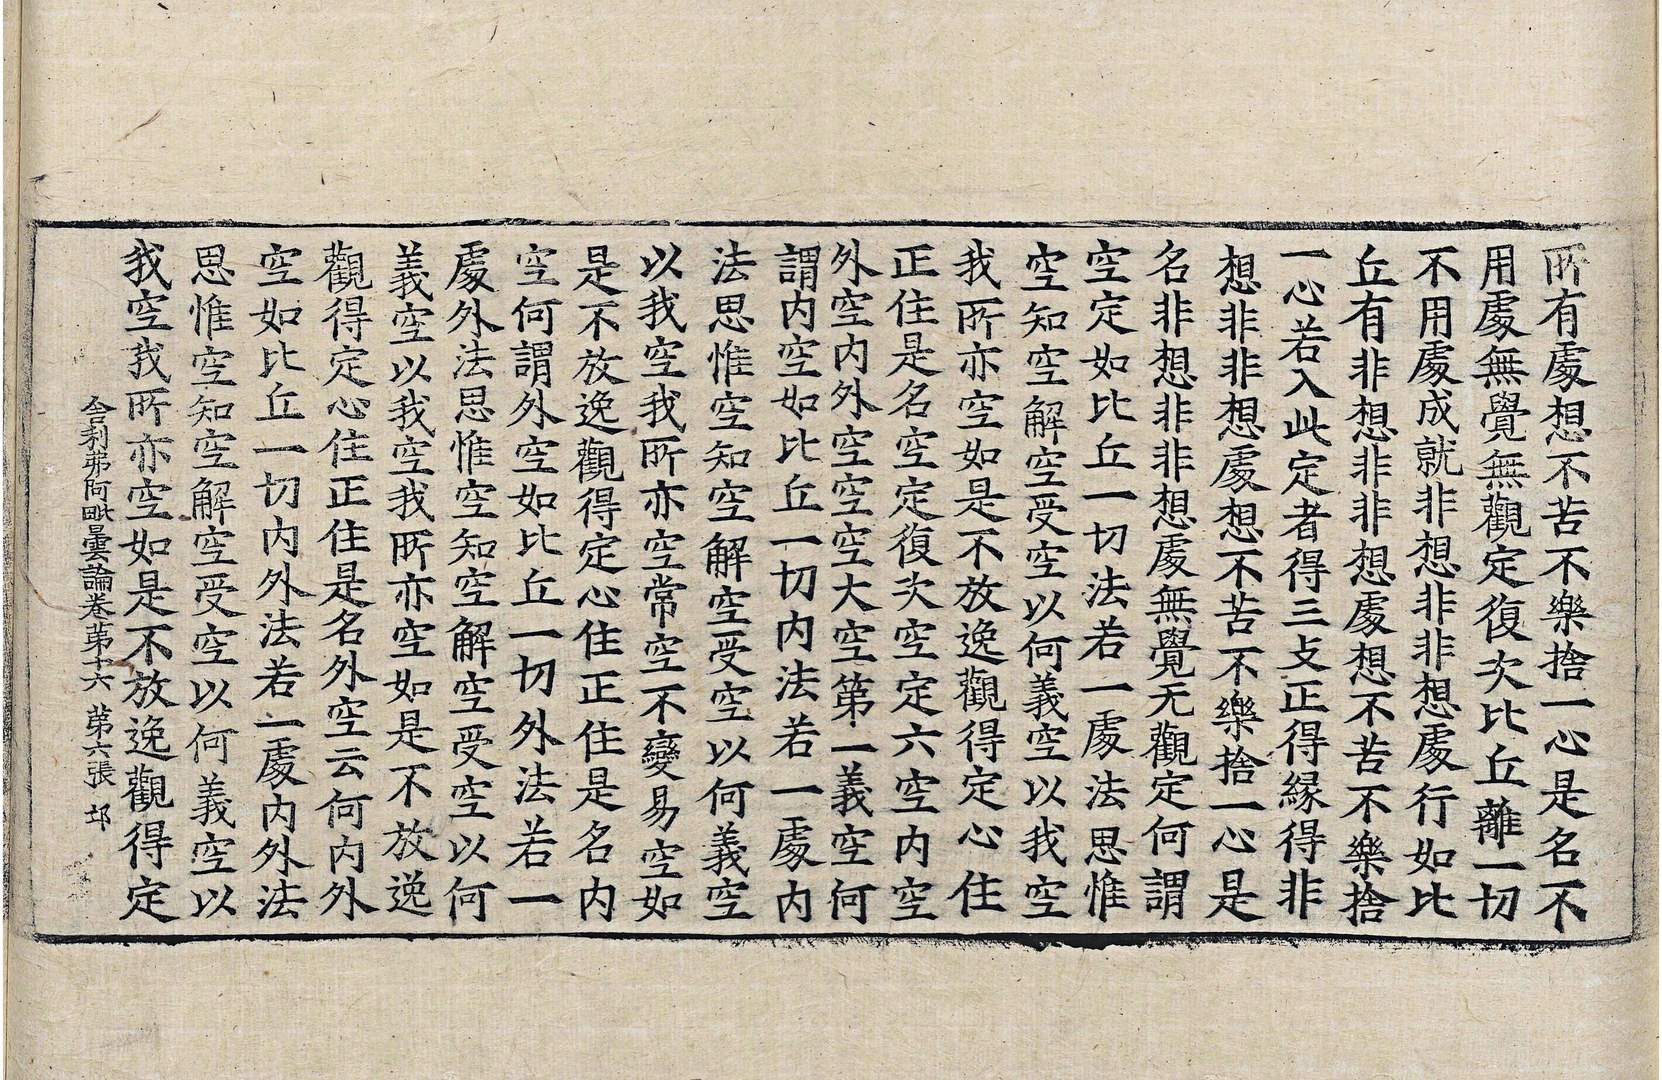 所有處想不苦不樂捨一心是名不
用處無覺無觀定復次比丘離一切
不用處成就非想非非想處行如比
丘有非想非非想處想不苦不樂捨
一心若入此定者得三支正得縁得非
想非非想處想不苦不樂捨一心是
名非想非非想處無覺无觀定何謂
空定如比丘一切法若一處法思惟
空知空解空受空以何義空以我空
我所亦空如是不放逸觀得定心住
正住是名空定復次空定六空內空
外空內外空空空大空第一義空何
謂內空如比丘一切內法若一處內
法思惟空知空解空受空以何義空
以我空我所亦空常空不變易空如
是不放逸觀得定心住正住是名內
空何謂外空如比丘一切外法若一
處外法思惟空知空解空受空以何
義空以我空我所亦空如是不放逸
觀得定心住正住是名外空云何內外
空如比丘一切內外法若一處內外法
思惟空知空解空受空以何義空以
我空我所亦空如是不放逸觀得定
舎利弗阿毗曇論卷苐十六 苐六張 邙